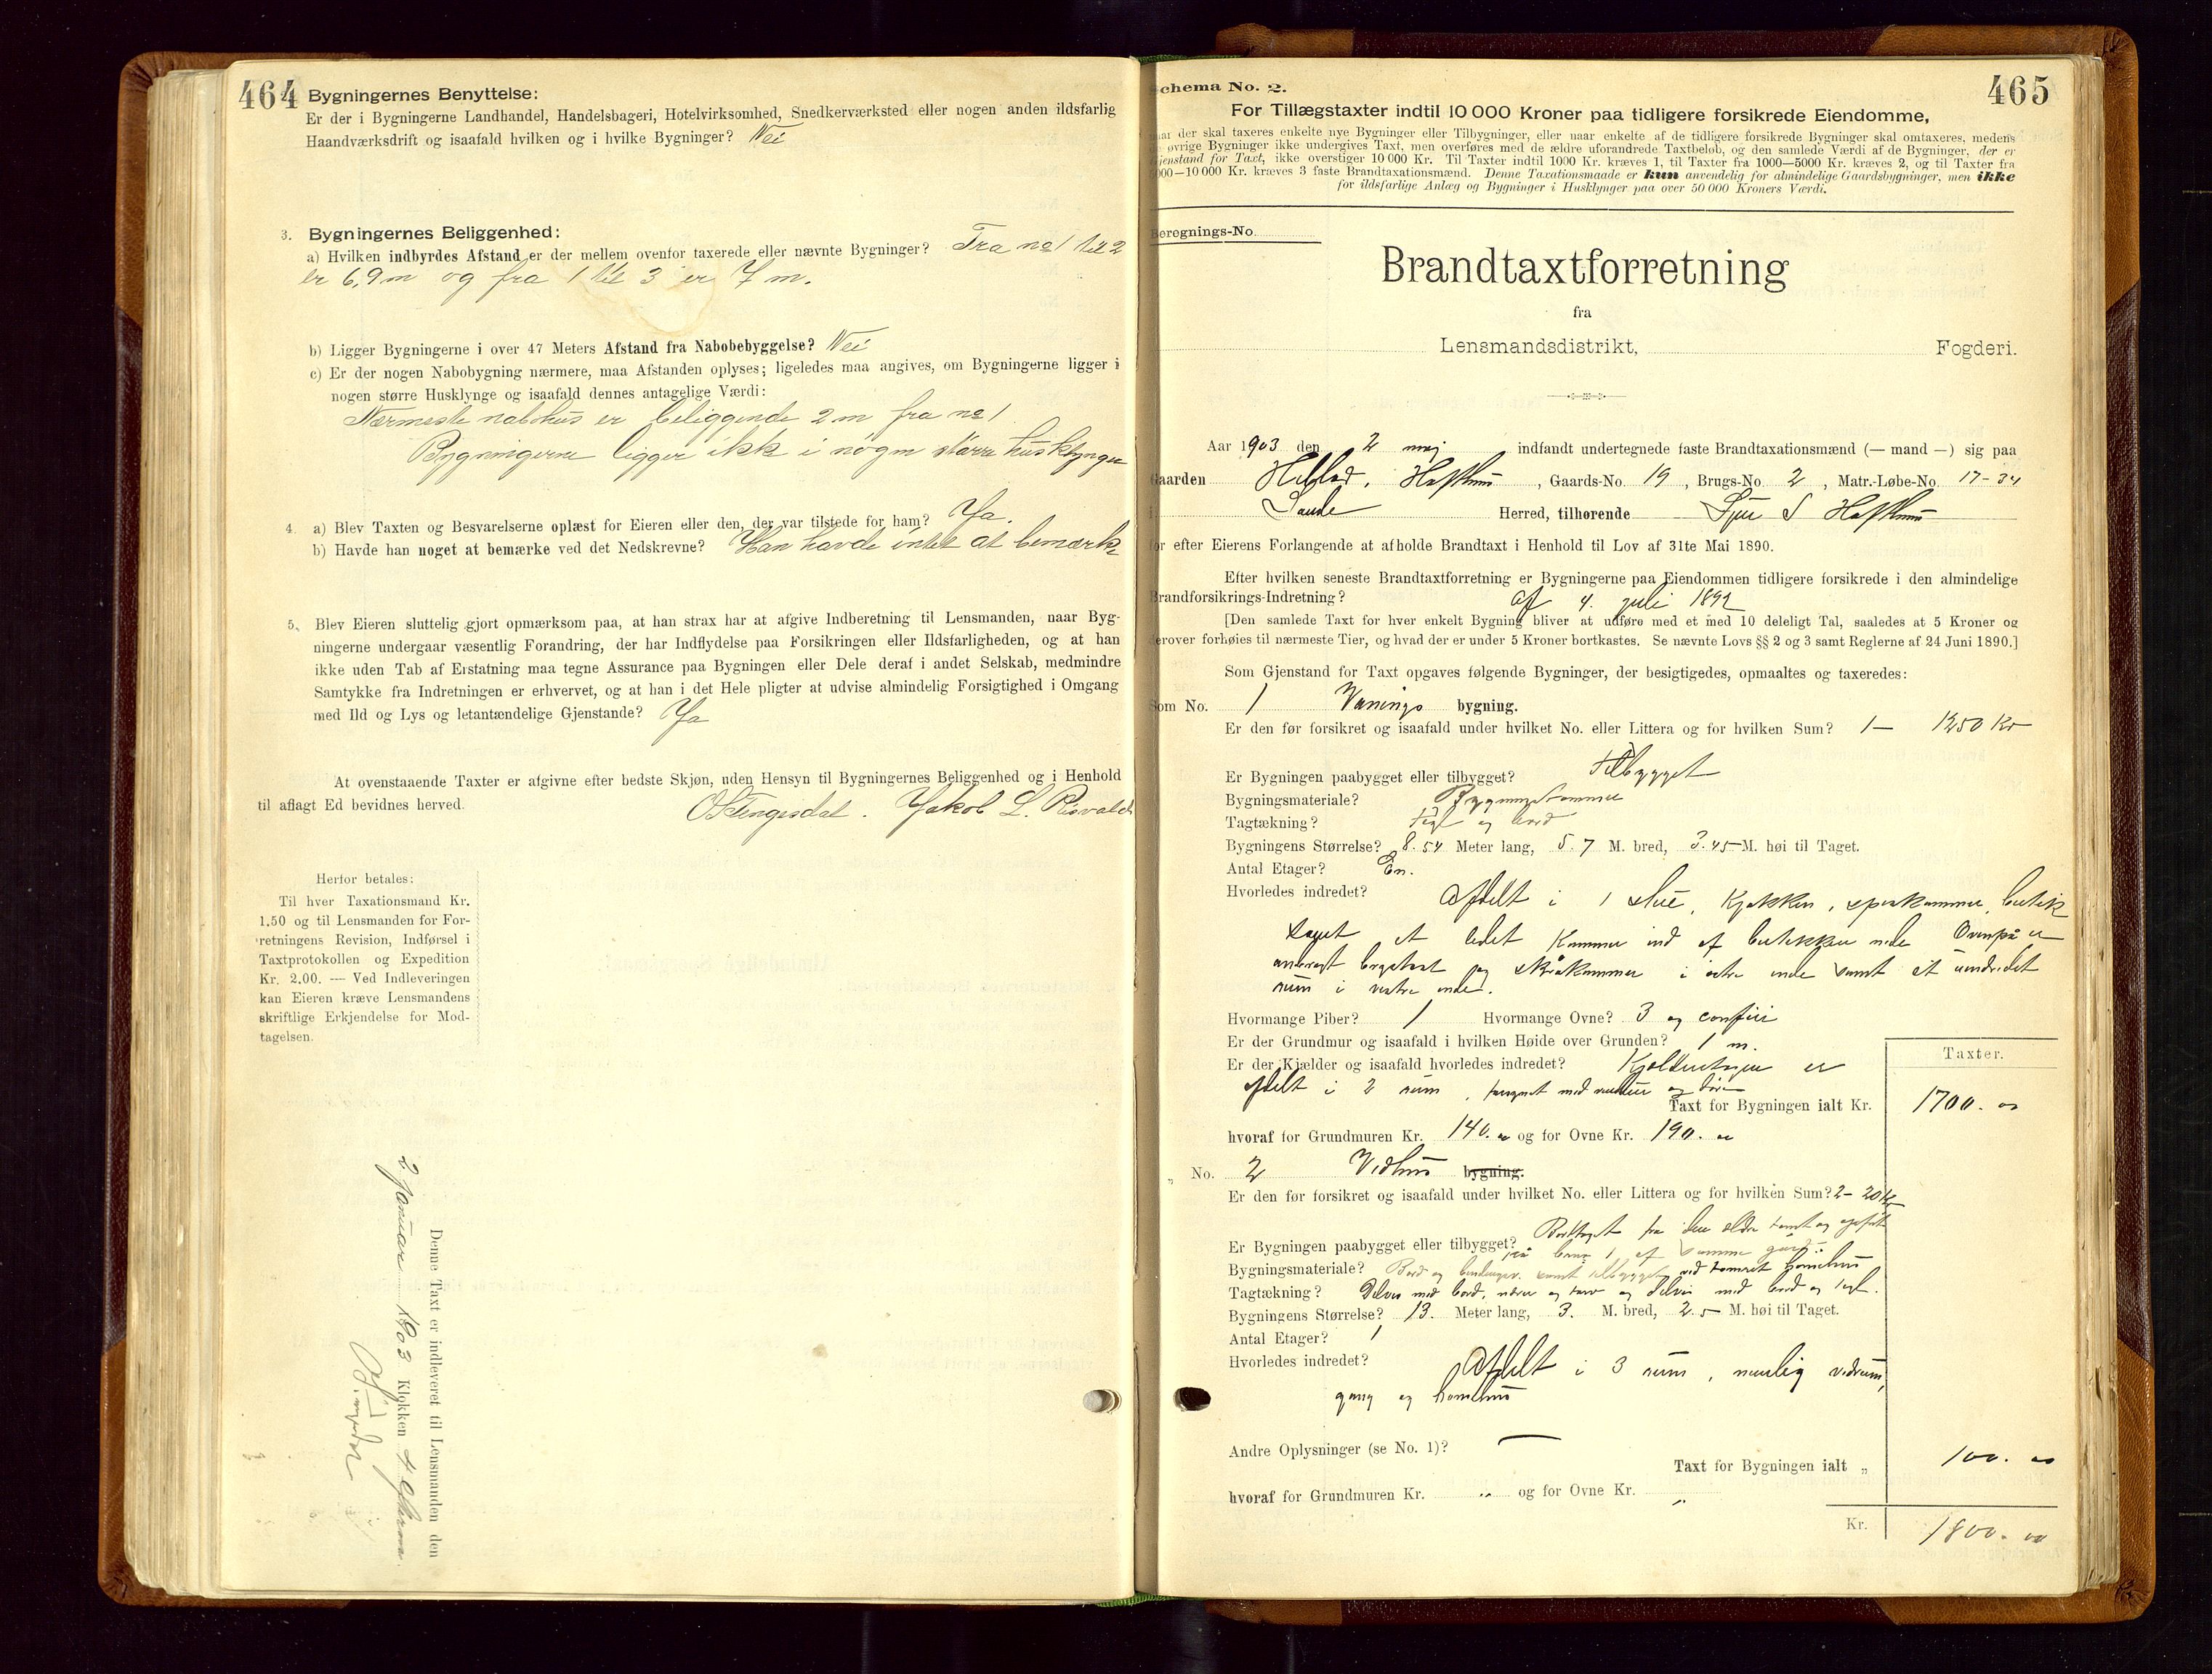 464
Bygningernes Benyttelse:
Er der i Bygningerne Landhandel, Handelsbageri, Hotelvirksomhed, Snedkerværksted eller nogen anden ildsfarlig
Haandværksdrift og isaafald hvilken og i hvilke Bygninger? Nei
3. Bygningernes Beliggenhed:
a) Hvilken indbyrdes Afstand er der mellem ovenfor taxerede eller nævnte Bygninger? Fra no 1 til 2
er 6,9 m og fra 1 til 3 er 7 m.
b) Ligger Bygningerne i over 47 Meters Afstand fra Nabobebyggelse? Nei
c) Er der nogen Nabobygning nærmere, maa Afstanden oplyses; ligeledes maa angives, om Bygningerne ligger i
nogen større Husklynge og isaafald dennes antagelige Værdi:
Nærmeste nabohus er beliggende 2 m fra no 1
Bygningerne ligger ikk i nogen større husklynge
4. a) Blev Taxten og Besvarelserne oplæst for Eieren eller den, der var tilstede for ham? Ja.
b) Havde han noget at bemærke ved det Nedskrevne? Han havde intet at bemærke
5. Blev Eieren sluttelig gjort opmærksom paa, at han strax har at afgive Indberetning til Lensmanden, naar Byg-
ningerne undergaar væsentlig Forandring, der har Indflydelse paa Forsikringen eller Ildsfarligheden, og at han
ikke uden Tab af Erstatning maa tegne Assurance paa Bygningen eller Dele deraf i andet Selskab, medmindre
Samtykke fra Indretningen er erhvervet, og at han i det Hele pligter at udvise almindelig Forsigtighed i Omgang
med Ild og Lys og letantændelige Gjenstande? Ja
At ovenstaaende Taxter er afgivne efter bedste Skjøn, uden Hensyn til Bygningernes Beliggenhed og i Henhold
til aflagt Ed bevidnes herved.
O Stengesdal. Jakob L. Risvald
Herfor betales:
Til hver Taxationsmand Kr.
1.50 og til Lensmanden for For-
retningens Revision, Indførsel i
Taxtprotokollen og Expedition
Kr. 2.00. — Ved Indleveringen
kan Eieren kræve Lensmandens
skriftlige Erkjendelse for Mod-
tagelsen.
Denne Taxt er indleveret til Lensmanden den
2 Januar 1903 Klokken 4
465
Schema No. 2.
For Tillægstaxter indtil 10 000 Kroner paa tidligere forsikrede Eiendomme,
naar der skal taxeres enkelte nye Bygninger eller Tilbygninger, eller naar enkelte af de tidligere forsikrede Bygninger skal omtaxeres, medens
øvrige Bygninger ikke undergives Taxt, men overføres med de ældre uforandrede Taxtbeløb, og den samlede Værdi af de Bygninger, der er
Gjenstand for Taxt, ikke overstiger 10 000 Kr. Til Taxter indtil 1000 Kr. kræves 1, til Taxter fra 1000—5000 Kr. kræves 2, og til Taxter fra
5000—10 000 Kr. kræves 3 faste Brandtaxationsmænd. Denne Taxationsmaade er kun anvendelig for almindelige Gaardsbygninger, men ikke
for ildsfarlige Anlæg og Bygninger i Husklynger paa over 50 000 Kroners Værdi.
Beregnings-No.
Brandtaxtforretning
fra
Lensmandsdistrikt, Fogderi.
Aar 1903 den 2 maj indfandt undertegnede faste Brandtaxationsmænd (— mand —) sig paa
Gaarden , Gaards-No. 19, Brugs-No. 2, Matr.-Løbe-No. 17-34
Saude Herred, tilhørende
for efter Eierens Forlangende at afholde Brandtaxt i Henhold til Lov af 31te Mai 1890.
Efter hvilken seneste Brandtaxtforretning er Bygningerne paa Eiendommen tidligere forsikrede i den almindelige
Brandforsikrings-Indretning? af 4. juli 1892
[Den samlede Taxt for hver enkelt Bygning bliver at udføre med et med 10 deleligt Tal, saaledes at 5 Kroner og
derover forhøies til nærmeste Tier, og hvad der er under 5 Kroner bortkastes. Se nævnte Lovs §§ 2 og 3 samt Reglerne af 24 Juni 1890.]
Som Gjenstand for Taxt opgaves følgende Bygninger, der besigtigedes, opmaaltes og taxeredes:
Som No. 1 Vaanings bygning.
Er den før forsikret og isaafald under hvilket No. eller Littera og for hvilken Sum? 1 — 1250 Kr
Er Bygningen paabygget eller tilbygget? Tilbygget
Bygningsmateriale? Bygningstømmer
Tagtækning? Tegl og bord
Bygningens Størrelse? 8.54 Meter lang, 5.7 M. bred, 3.45 M. høi til Taget.
Antal Etager? En.
Hvorledes indredet? Afdelt i 1 stue, Kjøkken, spiskammer, butik
samt et lidet Kammer ind af butikken nede Ovenpå er
skråkammer i østre ende samt et uindredet
rum i vestre ende.
Hvormange Piber? 1 Hvormange Ovne? 3 og comfür
Er der Grundmur og isaafald i hvilken Høide over Grunden? 1 m.
Er der Kjælder og isaafald hvorledes indredet? er
afdelt i 2 rum, og døre
Taxter.
Taxt for Bygningen ialt Kr. 1700. oo
hvoraf for Grundmuren Kr. 140. oo og for Ovne Kr. 190. oo
„ No. 2 Vedhus bygning.
Er den før forsikret og isaafald under hvilket No. eller Littera og for hvilken Sum? 2 — 20 Kr
Er Bygningen paabygget eller tilbygget? Borttaget fra den ældre tomt og opført
på brug 1 af samme gård.
Bygningsmateriale? Bord og samt tilbygget ved tømret
Tagtækning? Delvis med bord, næver og torv og delvis med bord og tegl.
Bygningens Størrelse? 13. Meter lang, 3. M. bred, 2.5 M. høi til Taget.
Antal Etager? 1
Hvorledes indredet? Afdelt i 3 rum, nemlig vedrum,
gang og
Andre Oplysninger (se No. 1)? —
Taxt for Bygningen ialt „ 100. oo
hvoraf for Grundmuren Kr. „ og for Ovne Kr. „
Kr. 1800. oo